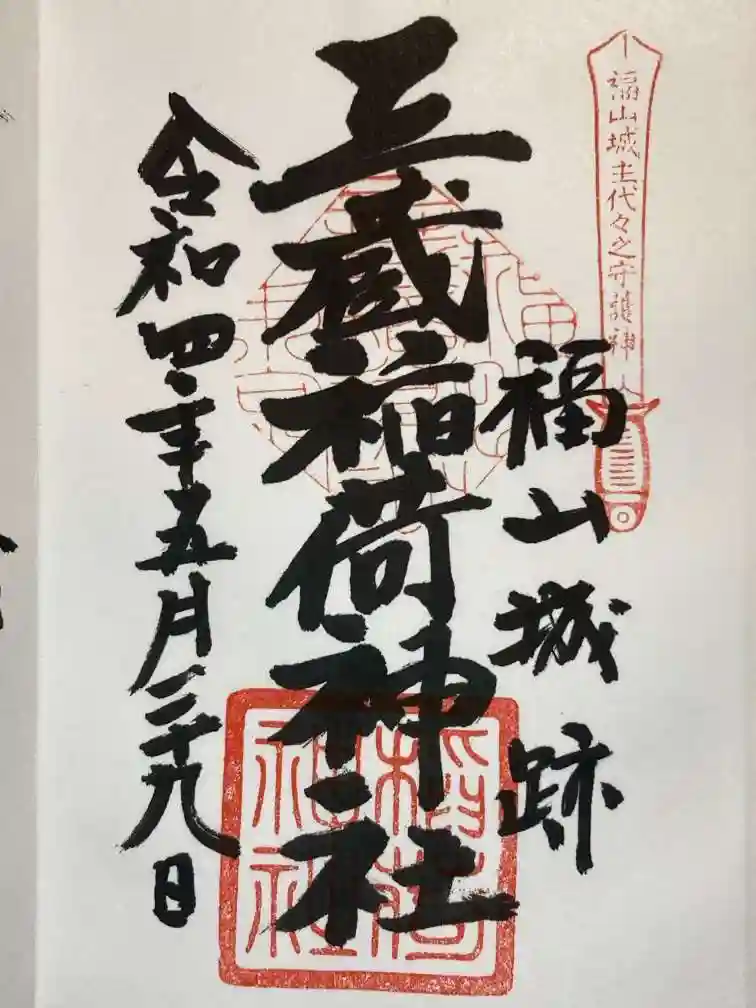 福山城主代々之守護神
福山城跡
三蔵稲荷神社
令和四年五月二十九日
稲荷
神社